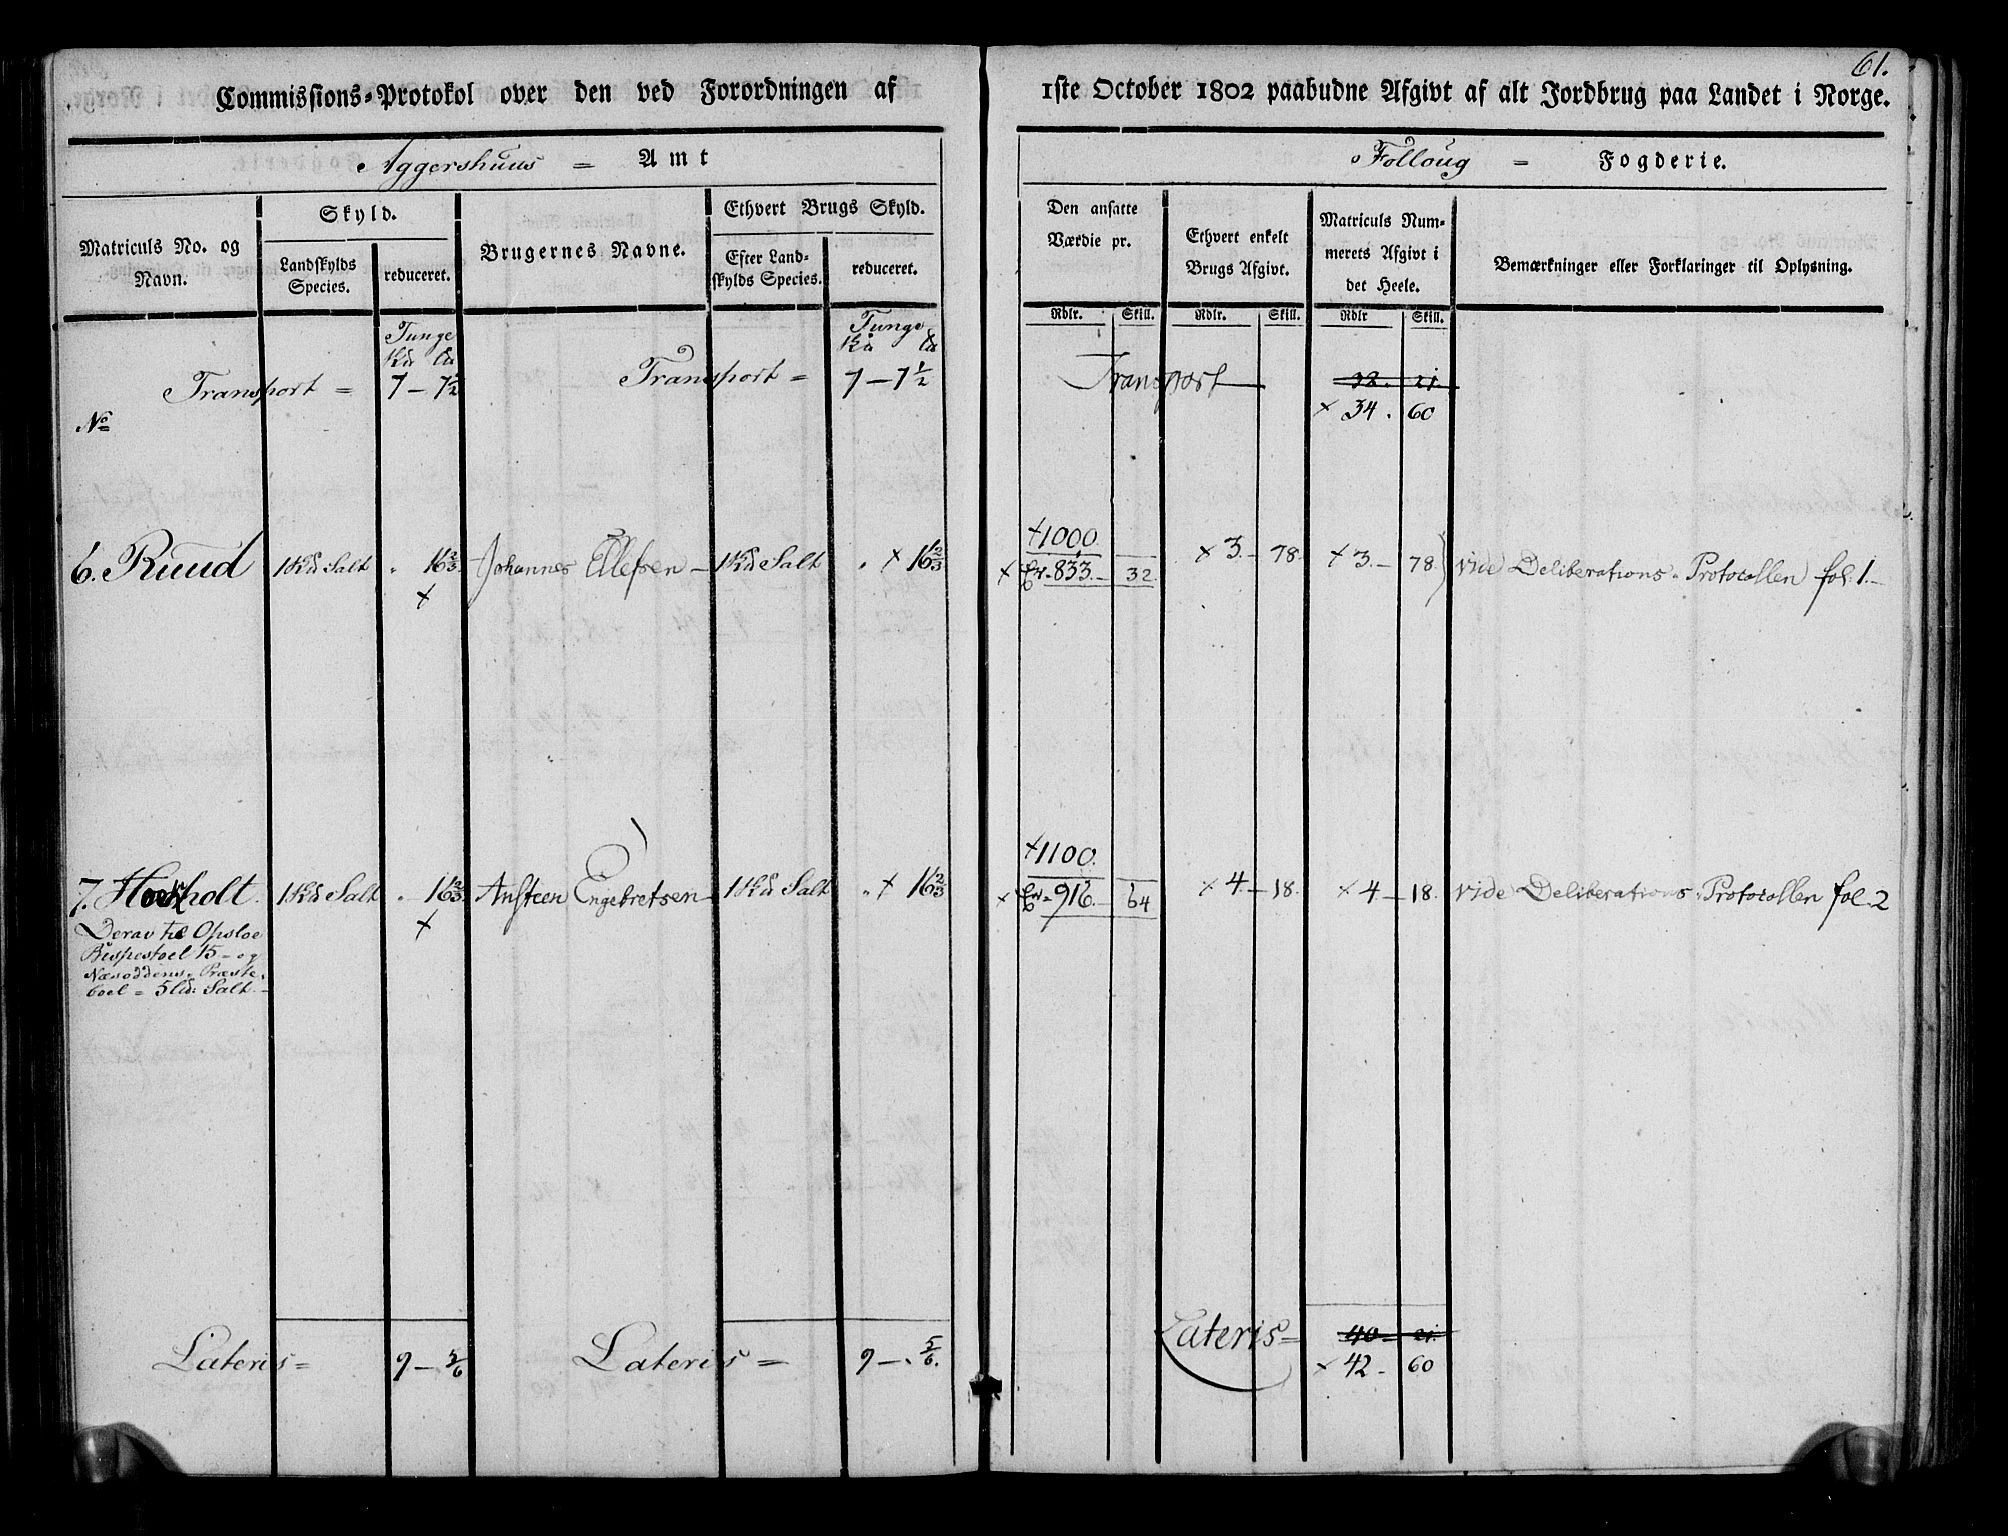 61.
Commissions-Protokol over den ved Forordningen af 1ste October 1802 paabudne Afgivt af alt Jordbrug paa Landet i Norge.
Aggershuus = Amt
Folloug = Fogderie.
Matriculs No. og Navn.
Skyld.
Landskylds Species.
reduceret.
Brugernes Navne.
Ethvert Brugs Skyld.
Efter Landskylds Species.
reduceret.
Den ansatte Værdie pr.
Ethvert enkelt Brugs Afgivt.
Matriculs Nummerets Afgivt i det Heele.
Bemærkninger eller Forklaringer til Oplysning.
Rdlr. Skill. Rdlr. Skill. Rdlr Skill.
Tunge Tunge
Transport = 7 – 7½ Transport = 7 – 7½ Transport 32. 21.
× 34. 60
No
× 1000.
6. Ruud 1 Kd Salt " 16⅔ Johannes Ellefsen – 1 Kd Salt " × 16⅔ × 833. – 32 × 3. – 78. × 3. – 78. vide Deliberations-Protocollen fol. 1. –
×
× 1100.
7. holt. 1 Kd Salt " 16⅔ Ansteen Engebretsen – 1 Kd Salt " × 16⅔ × 916. 64 × 4. – 18. × 4 – 18. vide Deliberations-Protocollen fol. 2
×
Derav til Opsloe
Bispestoel 15 – og
Næsoddens Præste-
boel = 5 Ld: Salt. –
Lateris = 9 – 5/6 Lateris = 9 – " 5/6. Lateris = 40 – 21.
× 42 – 60